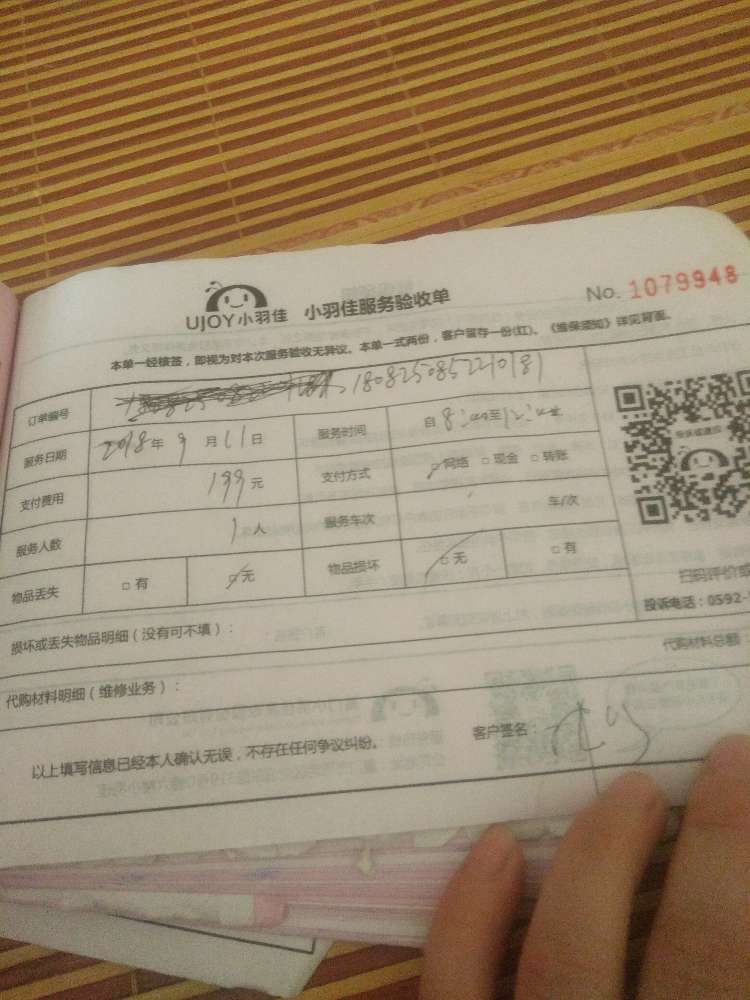 UJOY小羽佳 小羽佳服务验收单 No. 1079948
本单一经核签，即视为对本次服务验收无异议。本单一式两份，客户留存一份(红)。《维保须知》详见背面。
订单编号 1808250852210181
服务日期 2018年9月11日 服务时间 自8:00至12:00
支付费用 199元 支付方式 网络 □现金 □转账
服务人数 1人 服务车次 车/次
物品丢失 □有 无 物品损坏 无 □有
扫码评价或
投诉电话：0592-
损坏或丢失物品明细（没有可不填）：
代购材料明细（维修业务）： 代购材料总额
以上填写信息已经本人确认无误，不存在任何争议纠纷。 客户签名：